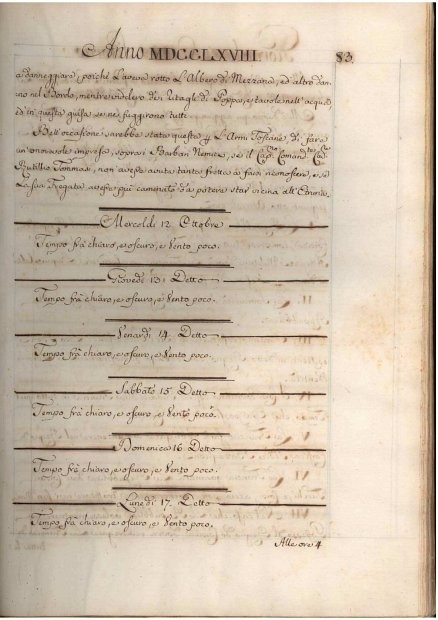 Anno MDCCLXVIII.
83.
a danneggiare, poichè l'aveva rotto l'Albero di Mezzana, ed altro dan:
no nel Bordo, mentre vedevo d'en Intagli di Poppa, e tavole nell'acqua,
ed in questa guisa se ne fuggirono tutti.
Bell'occasione sarebbe stata questa p l'Armi Toscane, di fare
un'onorevole impresa, sopra i Barbari Nemici, se il Capo Comandte Cav
Rutilio Tommasi, non avesse avuta tanta fretta a farsi riconoscere, e se
La sua Fregata, avesse più camminato da potere star vicina all'Etruria.
Mercoldì 12 Ottobre
Tempo frà chiaro, e oscuro, e Vento poco.
Giovedì 13. Detto
Tempo frà chiaro, e oscuro, e Vento poco.
Venardì 14. Detto
Tempo frà chiaro, e oscuro, e Vento poco.
Sabbato 15. Detto
Tempo frà chiaro, e oscuro, e Vento poco.
Domenica 16 Detto
Tempo frà chiaro, e oscuro, e Vento poco.
Lunedì 17. Detto
Tempo frà chiaro, e oscuro, e Vento poco.
Alle ore 4